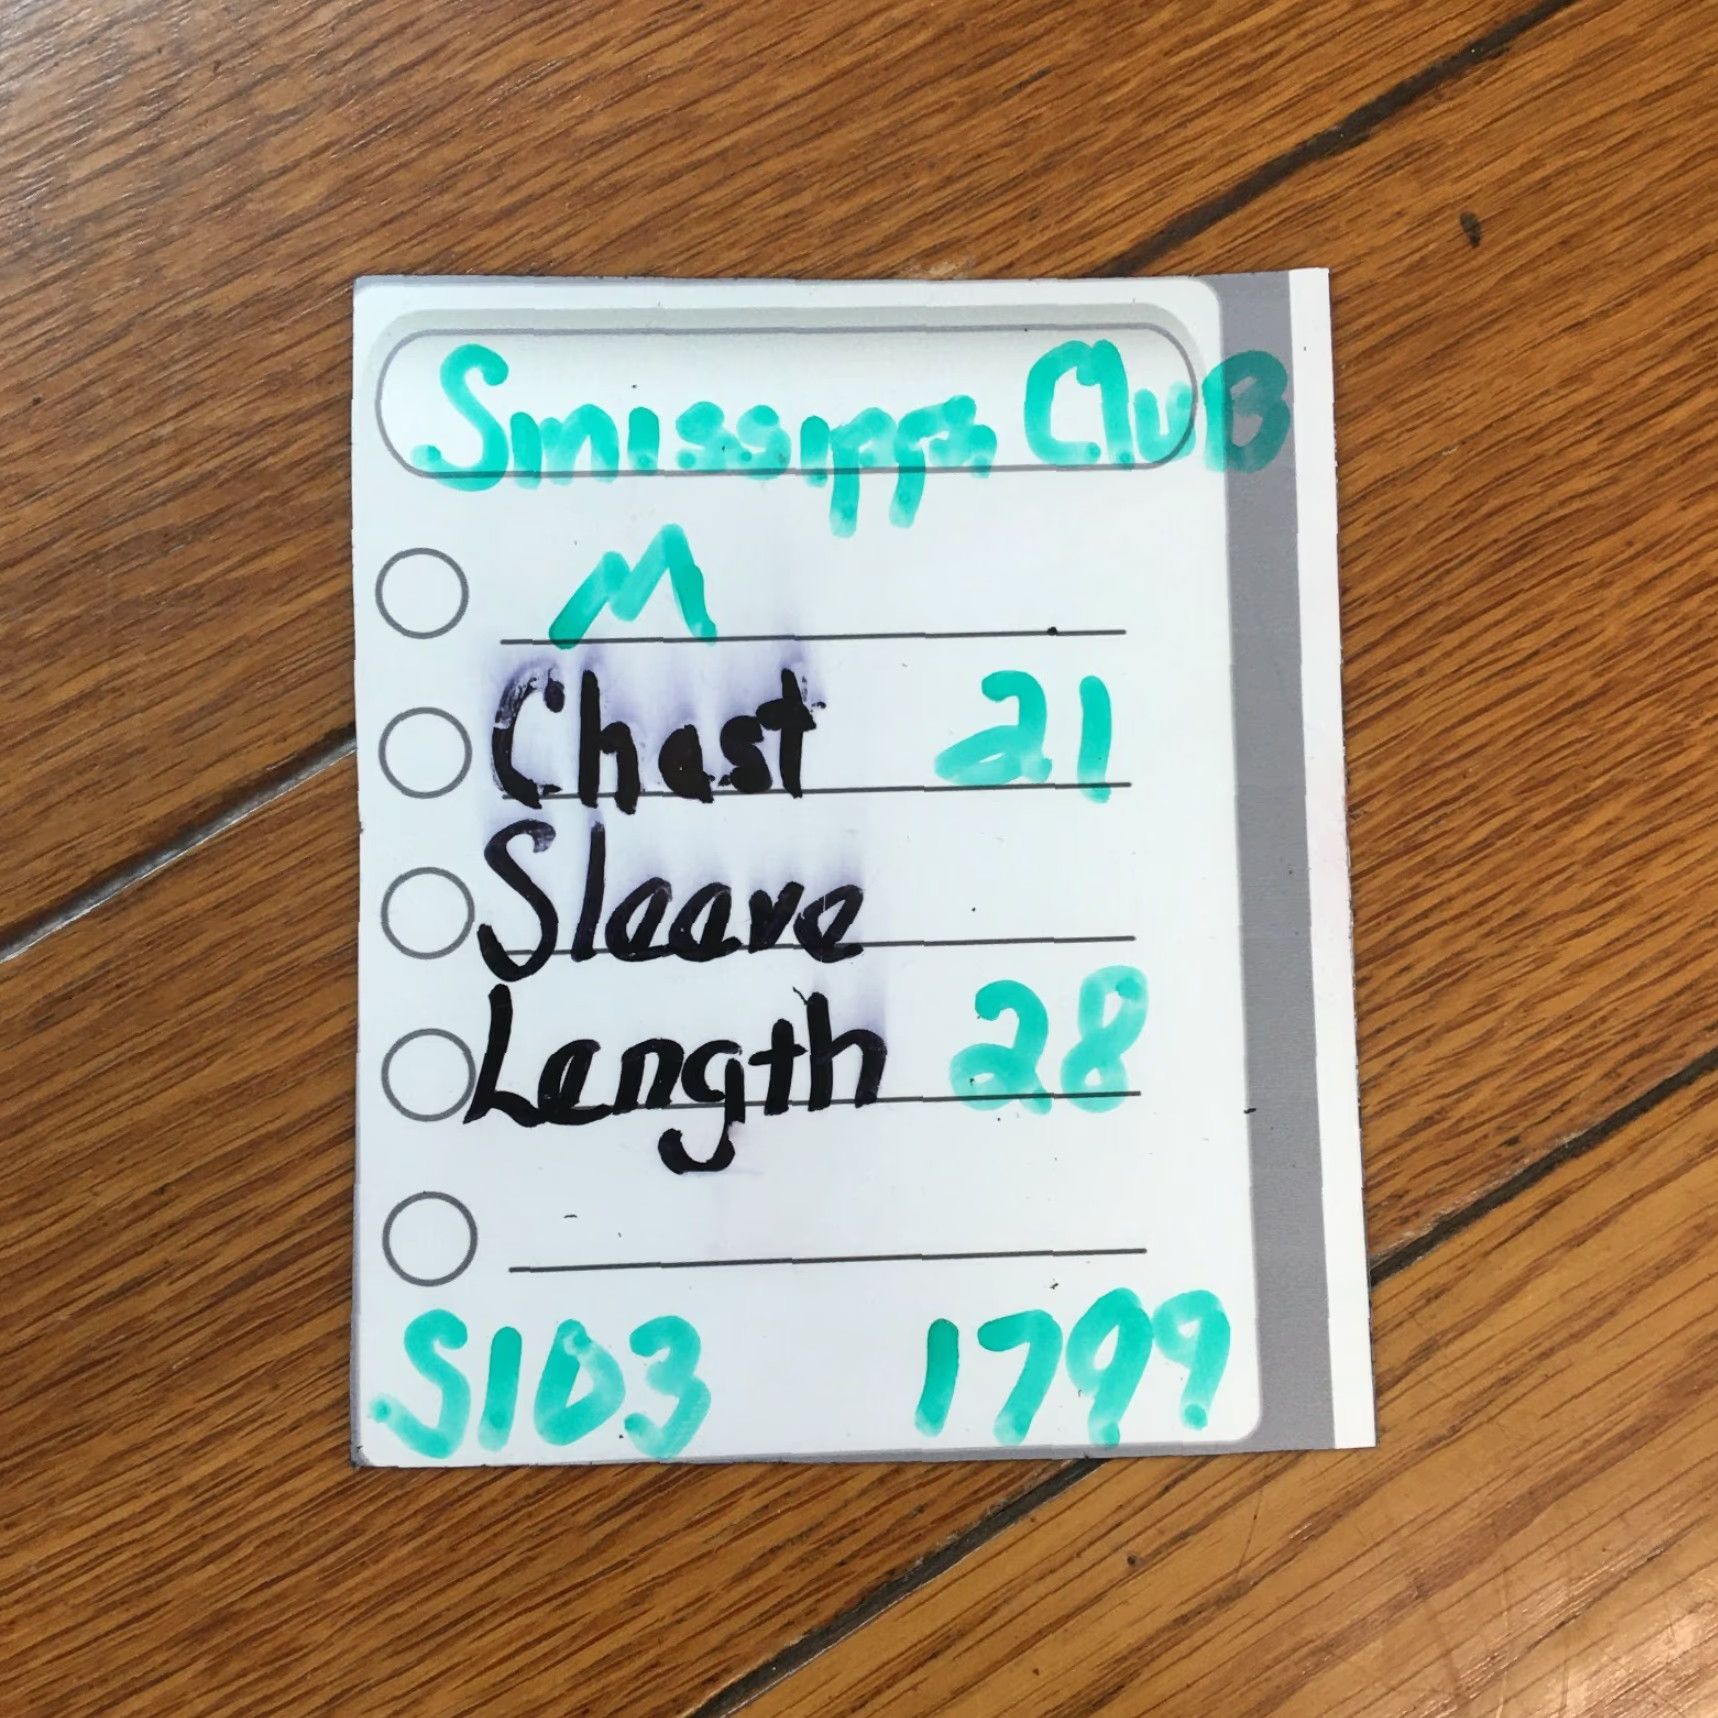 Smissippi Club
M
Chest 21
Sleeve
Length 28
S103 1799